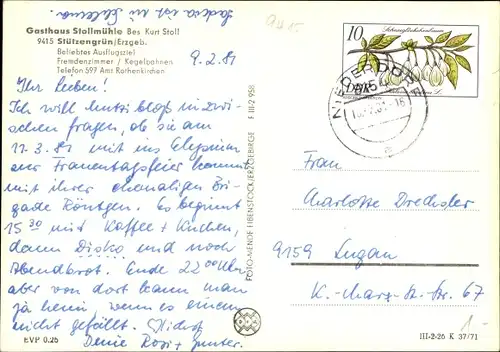 Gasthaus Stollmühle Bes Kurt Stoll
9415 Stützengrün/Erzgeb.
Beliebtes Ausflugsziel
Fremdenzimmer / Kegelbahnen
Telefon 597 Amt Rothenkirchen
9.2.81
Ihr Lieben!
Ich will zwi
schen fragen, ob sie am
11.3.81 mit ins Elysium
zur Frauentagsfeier kommt
mit ihrer ehemaligen Bri-
gade Röntgen. Es beginnt
15 30 mit Kaffee + Kuchen,
dann Disko und noch
Abendbrot. Ende 22 00 Uhr
aber von dort kann man
ja heim wenn es einem
nicht gefällt.
Deine Rosi + Gunter.
EVP 0,25
FOTO-MENDE EIBENSTOCK/ERZGEBIRGE F III-2 958
10
DDR
NIEDERDORF
9154
Frau
Charlotte Drechsler
9159 Lugau
K.-Marx-Str. 67
III-2-26 K 37/71
1.-